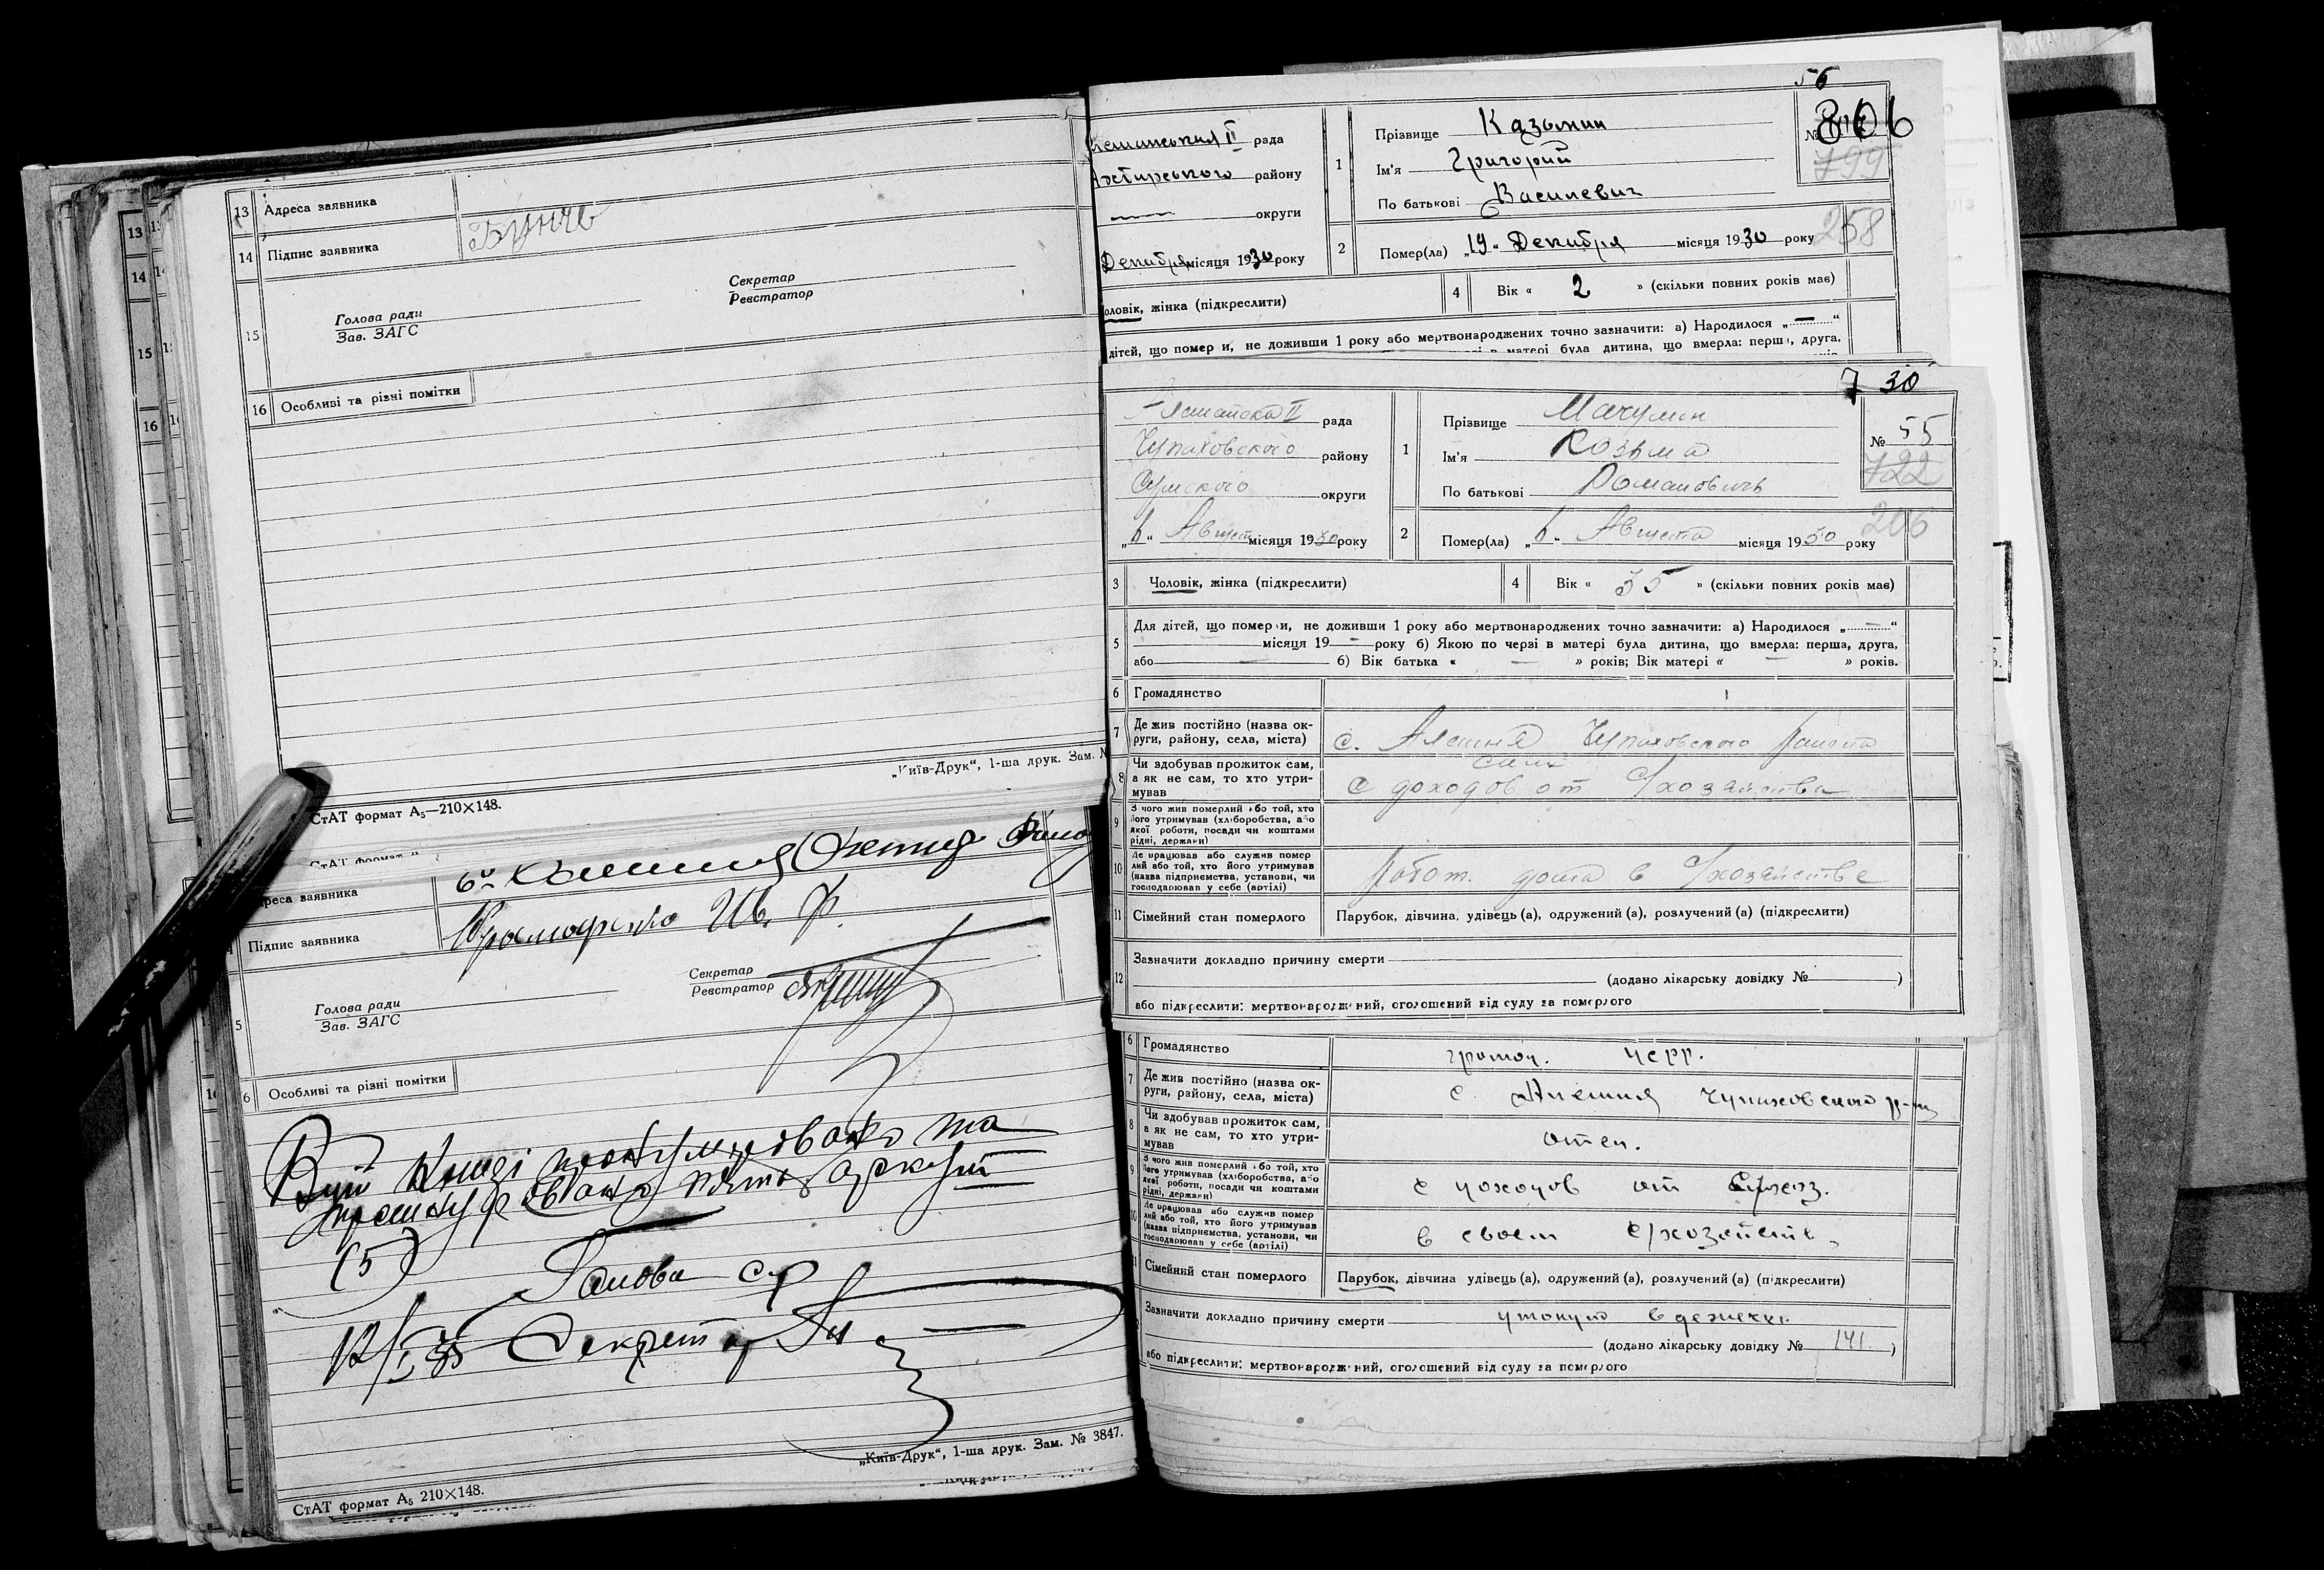 13 Адреса заявника
14 Підпис заявника
15 Голова ради
Зав. ЗАГС
Секретар
Реєстратор
16 Особливі та різні помітки
„Київ-Друк“, 1-ша друк. Зам. №
СтАТ формат А₅—210×148.
реса заявника
Підпис заявника Ив. Ф.
5 Голова ради
Зав. ЗАГС
Секретар
Реєстратор
6 Особливі та різні помітки
Книзі та
аркуш
(5)
Голова с/р
Секретар
„Київ-Друк“, 1-ша друк. Зам. № 3847.
СтАТ формат А₅ 210×148.
56
II рада
району
— округи
Декабря місяця 1930 року
1 Прізвище Казьмин
Ім'я Григорий
По батькові Васильевич
№ 806
799
2 Помер(ла) „19“ Декабря місяця 1930 року
258
оловік, жінка (підкреслити)
4 Вік « 2 » (скільки повних років має)
дітей, що помер и, не доживши 1 року або мертвонароджених точно зазначити: а) Народилося „ — “
в матері була дитина, що вмерла: перша, друга,
7 30
II рада
Чупаховского району
Сумского округи
„6“ Август місяця 1930 року
1 Прізвище Мачулин
Ім'я Козьма
По батькові Романовичь
№ 55
722
2 Помер(ла) „6“ Августа місяця 1930 року
206
3 Чоловік, жінка (підкреслити)
4 Вік « 35 » (скільки повних років має)
5 Для дітей, що померли, не доживши 1 року або мертвонароджених точно зазначити: а) Народилося „ — “
місяця 19 — року б) Якою по черзі в матері була дитина, що вмерла: перша, друга,
або — б) Вік батька « — » років; Вік матері « — » років.
6 Громадянство
7 Де жив постійно (назва округи, району, села, міста) с. Алешня Чупаховского района
8 Чи здобував прожиток сам, а як не сам, то хто утримував сам
с доходов от с/хозяйства
9 З чого жив померлий або той, хто його утримував (хліборобства, або якої роботи, посади чи коштами рідні, держави)
10 Де працював або служив померлий або той, хто його утримував (назва підприємства, установи, чи господарював у себе (артілі) работ. дома в с/хозяйстве
11 Сімейний стан померлого Парубок, дівчина, удівець (а), одружений (а), розлучений (а) (підкреслити)
12 Зазначити докладно причину смерти
(додано лікарську довідку № )
або підкреслити: мертвонароджений, оголошений від суду за померлого
6 Громадянство
7 Де жив постійно (назва округи, району, села, міста) с. Алешня Чупаховского р-на
8 Чи здобував прожиток сам, а як не сам, то хто утримував отец.
9 З чого жив померлий або той, хто його утримував (хліборобства, або якої роботи, посади чи коштами рідні, держави) с доходов от с/хоз.
10 Де працював або служив померлий або той, хто його утримував (назва підприємства, установи, чи господарював у себе (артілі) в своем с/хозяйств.
Сімейний стан померлого Парубок, дівчина удівець (а), одружений (а), розлучений (а) (підкреслити)
Зазначити докладно причину смерти утонул
(додано лікарську довідку № 141. )
або підкреслити: мертвонароджений, оголошений від суду за померлого